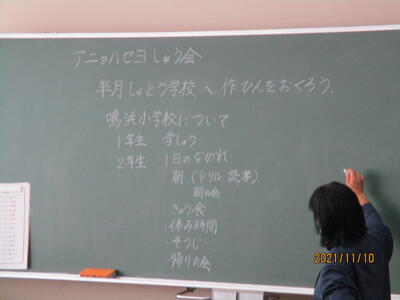 アニョハセヨしゅう会
半月しょとう学校へ作ひんをおくろう。
鳴浜小学校について
1年生 学しゅう
2年生 1日のながれ
朝(ドリル 読書)
朝の会
・きゅう食
・休み時間
・そうじ
・帰りの会
2021/11/10